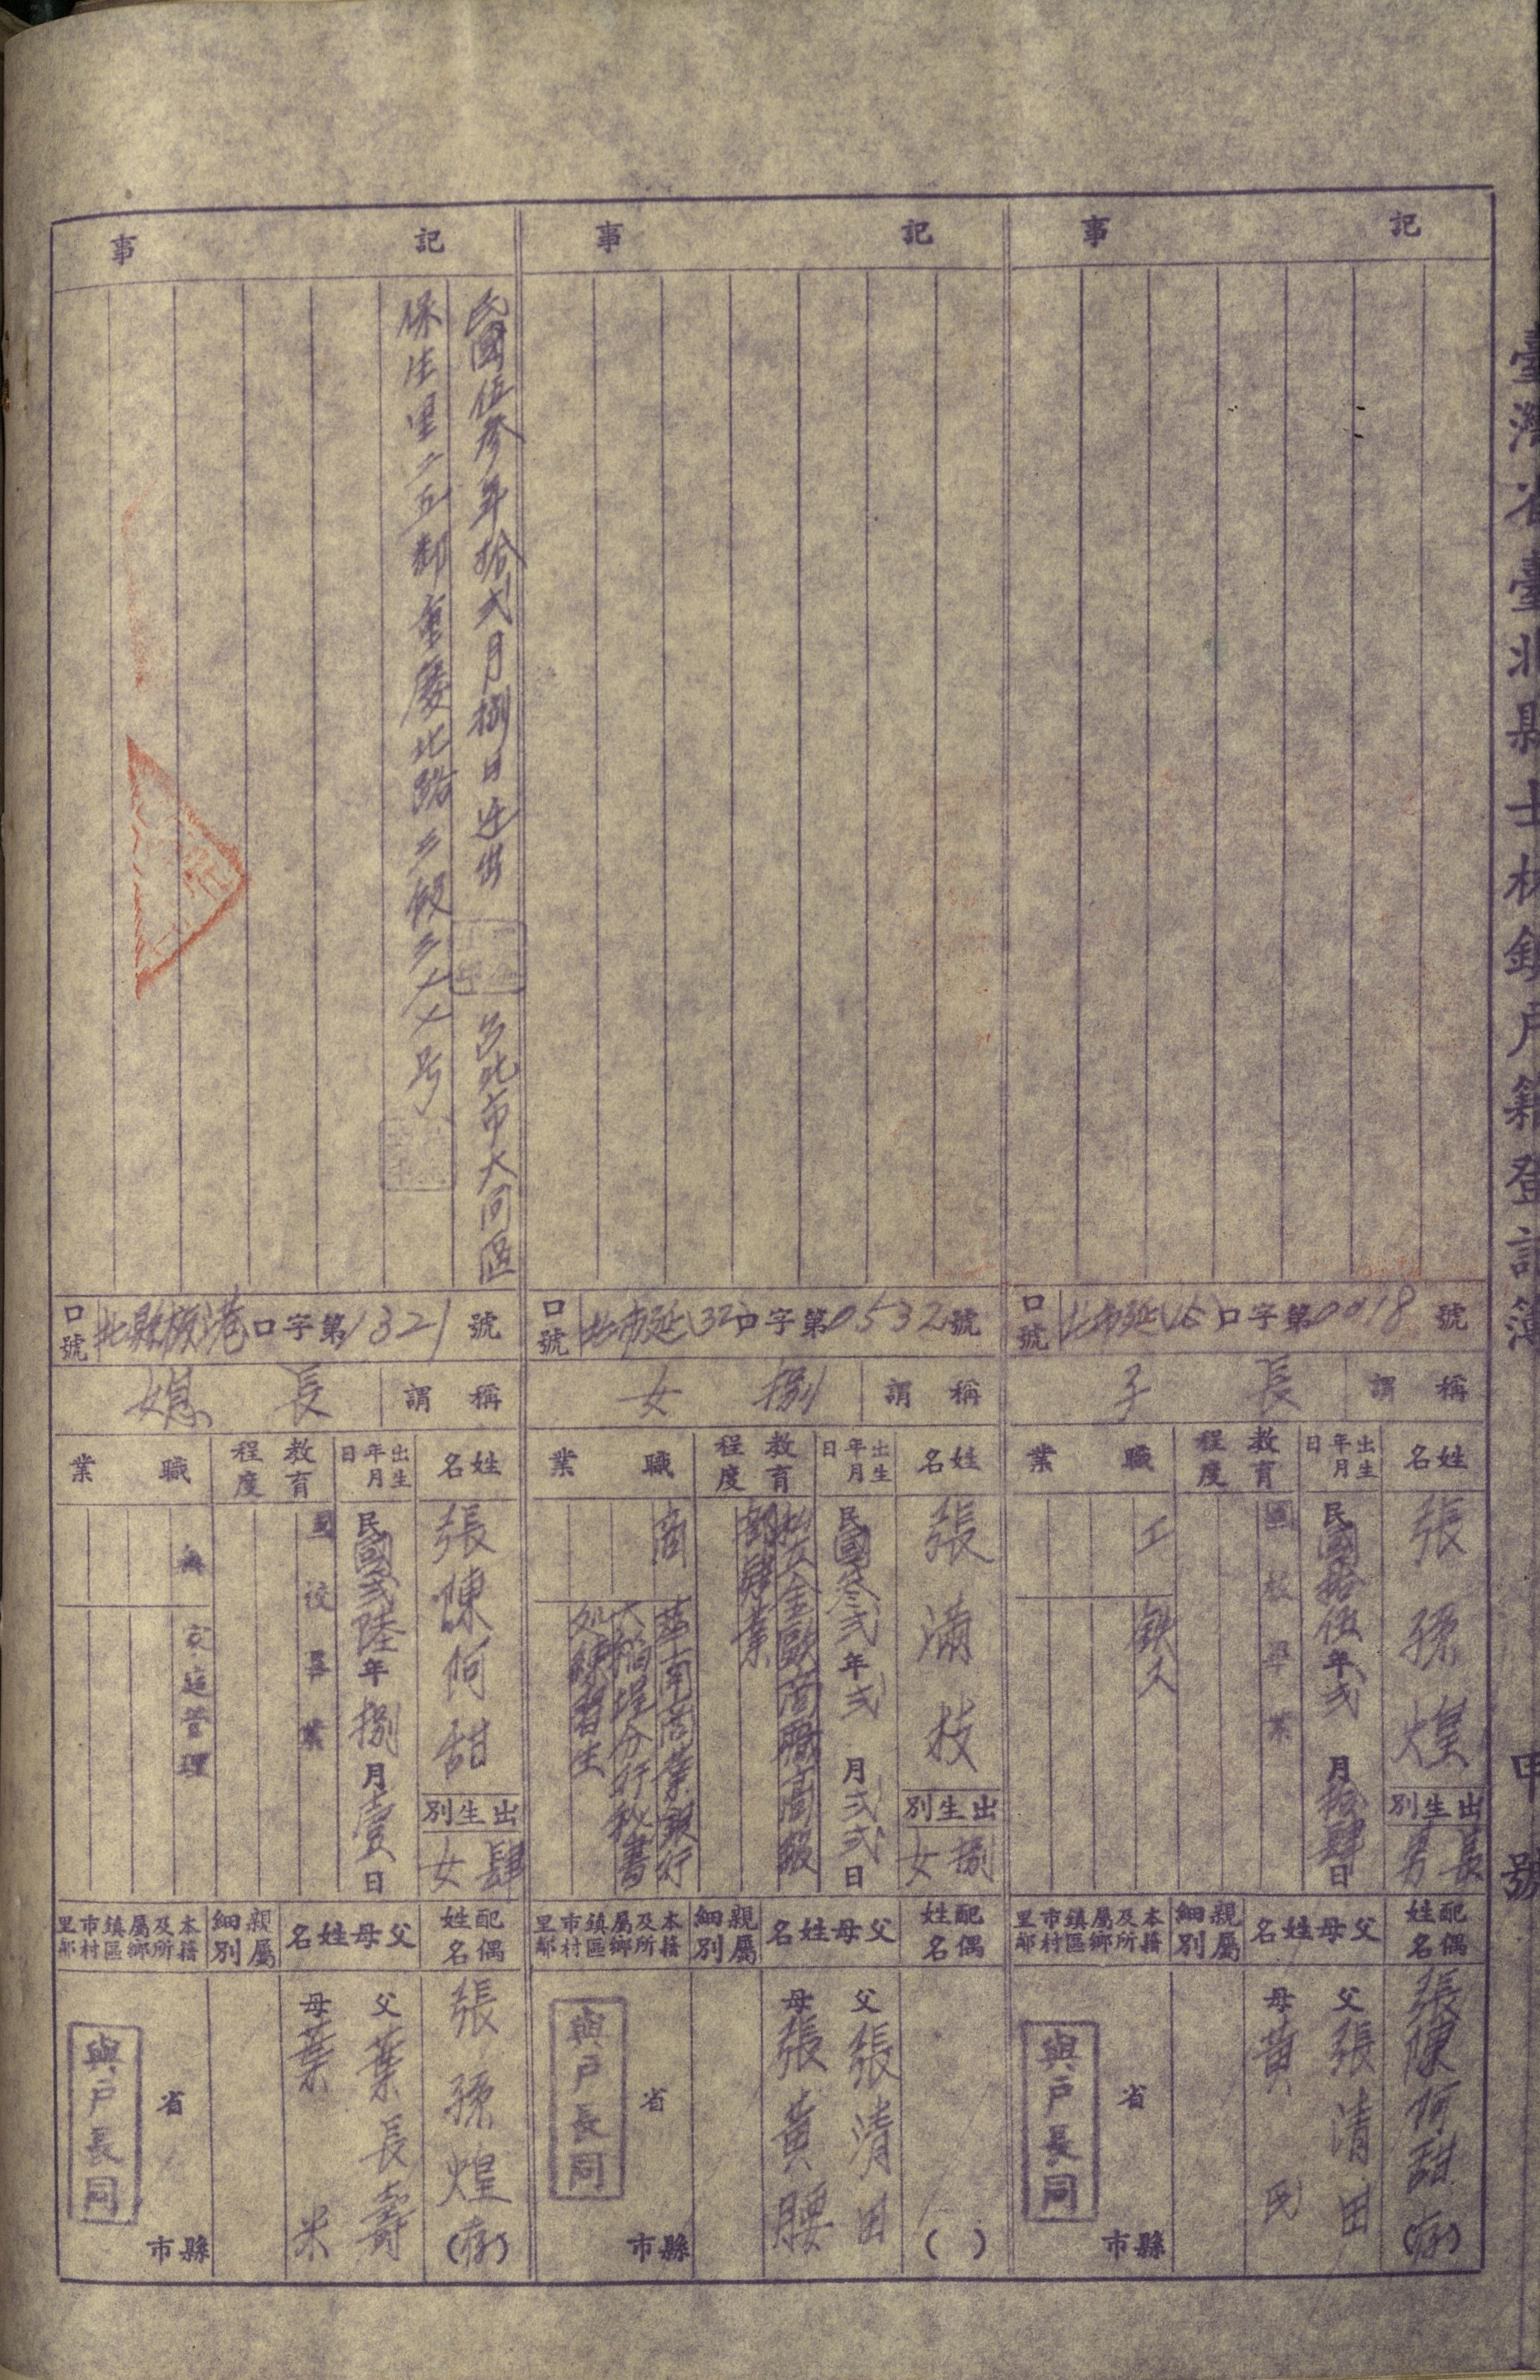 臺灣省臺北縣士林鎮戶籍登記簿
中
號
記事
口號 北市延(15)口字第0018號
稱謂 長子
姓名 張孫煌
出生別 長男
出生年月日 民國拾伍年弍月拾肆日
教育程度 國校畢業
職業 工
鉄工
配偶姓名 張陳何甜(存)
父母姓名
父 張清田
母 黃 氏
親屬細別
本籍及所屬鄉鎮區市村里鄰
省
縣市
與戶長同
記事
口號 北市延(32)口字第0532號
稱謂 捌女
姓名 張滿枝
出生別 捌女
出生年月日 民國叁弍年弍月弍弍日
教育程度
金甌商職高級
部肄業
職業 商
華南商業銀行
大稻埕分行秘書
處練習生
配偶姓名 ( )
父母姓名
父 張清田
母 張黃腰
親屬細別
本籍及所屬鄉鎮區市村里鄰
省
縣市
與戶長同
記事
民國伍參年拾弍月捌日遷出
台北市大同區
保生里二五鄰重慶北路三段
号
口號 北縣板港口字第1321號
稱謂 長媳
姓名 張陳何甜
出生別 肆女
出生年月日 民國弍陸年捌月壹日
教育程度 國校畢業
職業 無
家庭管理
配偶姓名 張孫煌(存)
父母姓名
父 葉長壽
母 葉 米
親屬細別
本籍及所屬鄉鎮區市村里鄰
省
縣市
與戶長同